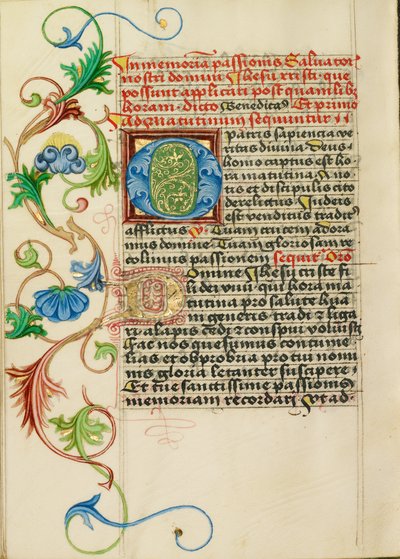 In memoria passionis Saluator
nostri domini Jhesu xpisti que
possunt applicari post quamlib
horam dicto Benedicam9 Et primo
Ad matutinum sequuntur
Patris sapiencia ve
ritas diuina Deus
homo captus est ho
ra matutina / no
tis et discipulis cito
derelictus / Judeis
est venditus tradit9
afflictus Cuam item adora
mus domine Cuam gloriosam re
colim9 passionem sequit Oro
Domine Jhesu xpiste fi
li dei viui qui hora ma
tutina pro salute hua
ni generis tradi et liga
ri alapis cedi et conspui voluisti
Fac nos quesumus contume
lias et obprobria pro tui nomi
nis gloria letanter suscipere
Et tue sanctissime passionis
memoriam recordari / Vt ad